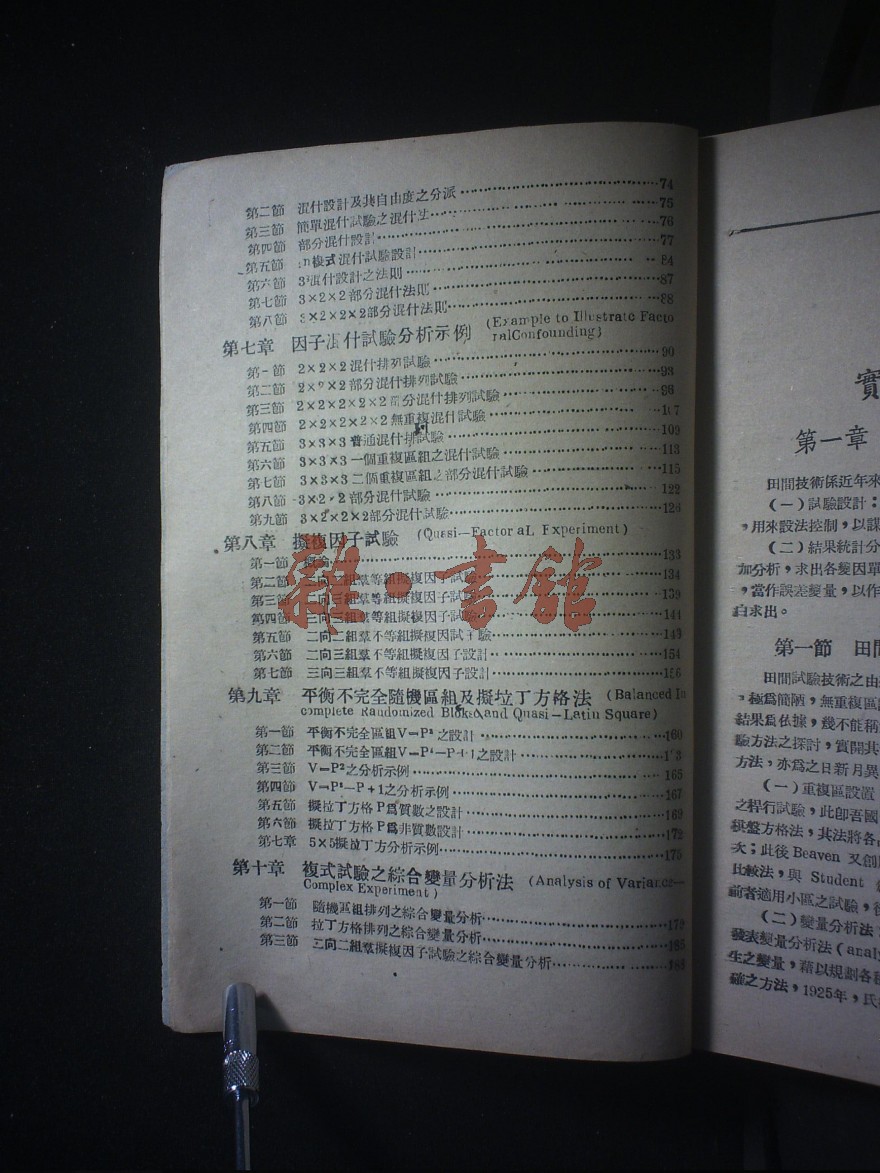 第二節 混什設計及其自由度之分派 74
第三節 簡單混什試驗之混什法 75
第四節 部分混什設計 76
第五節 複式混什試驗設計 77
第六節 混什設計之法則 84
第七節 3×2×2部分混什法則 87
第八節 3×2×2×2部分混什法則 88
第七章 因子混什試驗分析示例 (Example to Illustrate Facto
ralConfounding)
第一節 2×2×2混什排列試驗 90
第二節 2×2×2部分混什排列試驗 93
第三節 2×2×2×2×2部分混什排列試驗 96
第四節 2×2×2×2×2無重複混什試驗 107
第五節 3×3×3普通混什排試驗 109
第六節 3×3×3一個重複區組之混什試驗 113
第七節 3×3×3二個重複區組之部分混什試驗 115
第八節 3×2×2部分混什試驗 122
第九節 3×2×2×2部分混什試驗 126
第八章 擬複因子試驗 (Quasi—Factor aL Experiment)
第一節 概論 133
第二節 二向二組羣等組擬複因子試驗 134
第三節 二向三組羣等組擬複因子試驗 139
第四節 三向三組羣等組擬複因子試驗 144
第五節 二向二組羣不等組擬複因試子驗 149
第六節 二向三組羣不等組擬複因子設計 154
第七節 三向三組羣不等組擬複因子設計 156
第九章 平衡不完全隨機區組及擬拉丁方格法 (Balanced In
complete Randomized Bloks and Quasi—Latin Square)
第一節 平衡不完全區組V=P²之設計 160
第二節 平衡不完全區組V=P²—P+1之設計
第三節 V=P²之分析示例 165
第四節 V=P²—P+1之分析示例 167
第五節 擬拉丁方格P爲質數之設計 169
第六節 擬拉丁方格P爲非質數設計 172
第七章 5×5擬拉丁方分析示例 175
第十章 複式試驗之綜合變量分析法 (Analysis of Variance—
Complex Experiment)
第一節 隨機區組排列之綜合變量分析 179
第二節 拉丁方格排列之綜合變量分析 185
第三節 二向二組羣擬複因子試驗之綜合變量分析 188
雜·書館
實
第一章
田間技術係近年來
(一)試驗設計:
,用來設法控制,以謀
(二)結果統計分
加分析,求出各變因單
,當作誤差變量,以作
白求出。
第一節 田間
田間試驗技術之由
,極爲簡陋,無重複區
結果爲依據,幾不能稱
驗方法之探討,實開其
方法,亦爲之日新月異
(一)重複區設置
之桿行試驗,此卽吾國
棋盤方格法,其法將各
次;此後Beaven又創
比較法,與 Student
前者適用小區之試驗,後
(二)變量分析法
發表變量分析法(analy
生之變量,藉以規劃各種
確之方法,1925年,氏